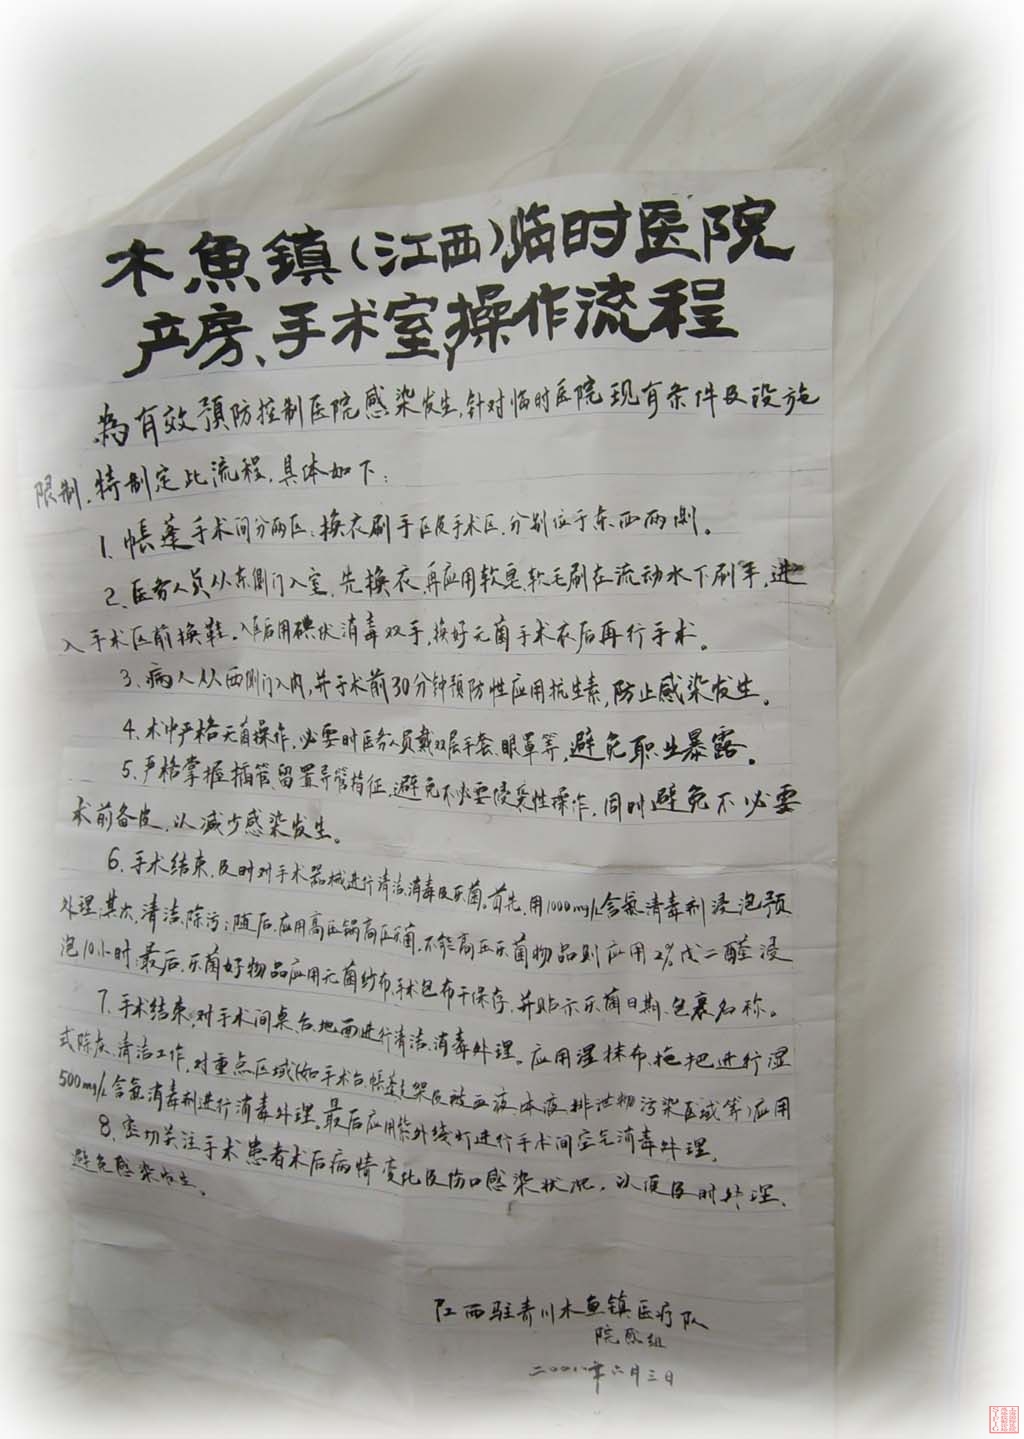 木魚鎮(江西)临时医院
产房、手术室操作流程
為有效預防控制医院感染发生,针对临时医院现有条件及设施
限制,特制定此流程,具体如下:
1、帳蓬手术间分两区:换衣刷手区及手术区,分别位于东西两侧。
2、医务人员从东侧门入室,先换衣,再应用软皂、软毛刷在流动水下刷手,进
入手术区前换鞋。入区后用碘伏消毒双手,换好无菌手术衣后再行手术。
3、病人从西侧门入内,并于术前30分钟预防性应用抗生素,防止感染发生。
4、术中严格无菌操作,必要时医务人员戴双层手套、眼罩等,避免职业暴露。
5、严格掌握插管、留置导管指征,避免不必要侵袭性操作,同时避免不必要
术前备皮,以减少感染发生。
6、手术结束,及时对手术器械进行清洁、消毒及灭菌。首先,用1000mg/L含氯消毒剂浸泡预
处理;其次,清洁、除污;随后,应用高压锅高压灭菌,不能高压灭菌物品则应用2%戊二醛浸
泡10小时;最后,灭菌好物品应用无菌纱布、手术包布干保存,并贴示灭菌日期、包裹名称。
7、手术结束,对手术间桌、台、地面进行清洁、消毒处理。应用湿抹布、拖把进行湿
式除灰、清洁工作,对重点区域(如手术台、帳蓬支架及被血液、体液、排泄物污染区域等)应用
500mg/L含氯消毒剂进行消毒处理。最后应用紫外线灯进行手术间空气消毒处理。
8、密切关注手术患者术后病情变化及伤口感染状况,以便及时处理、
避免感染发生。
江西驻青川木鱼镇医疗队
院感组
二〇〇八年六月三日